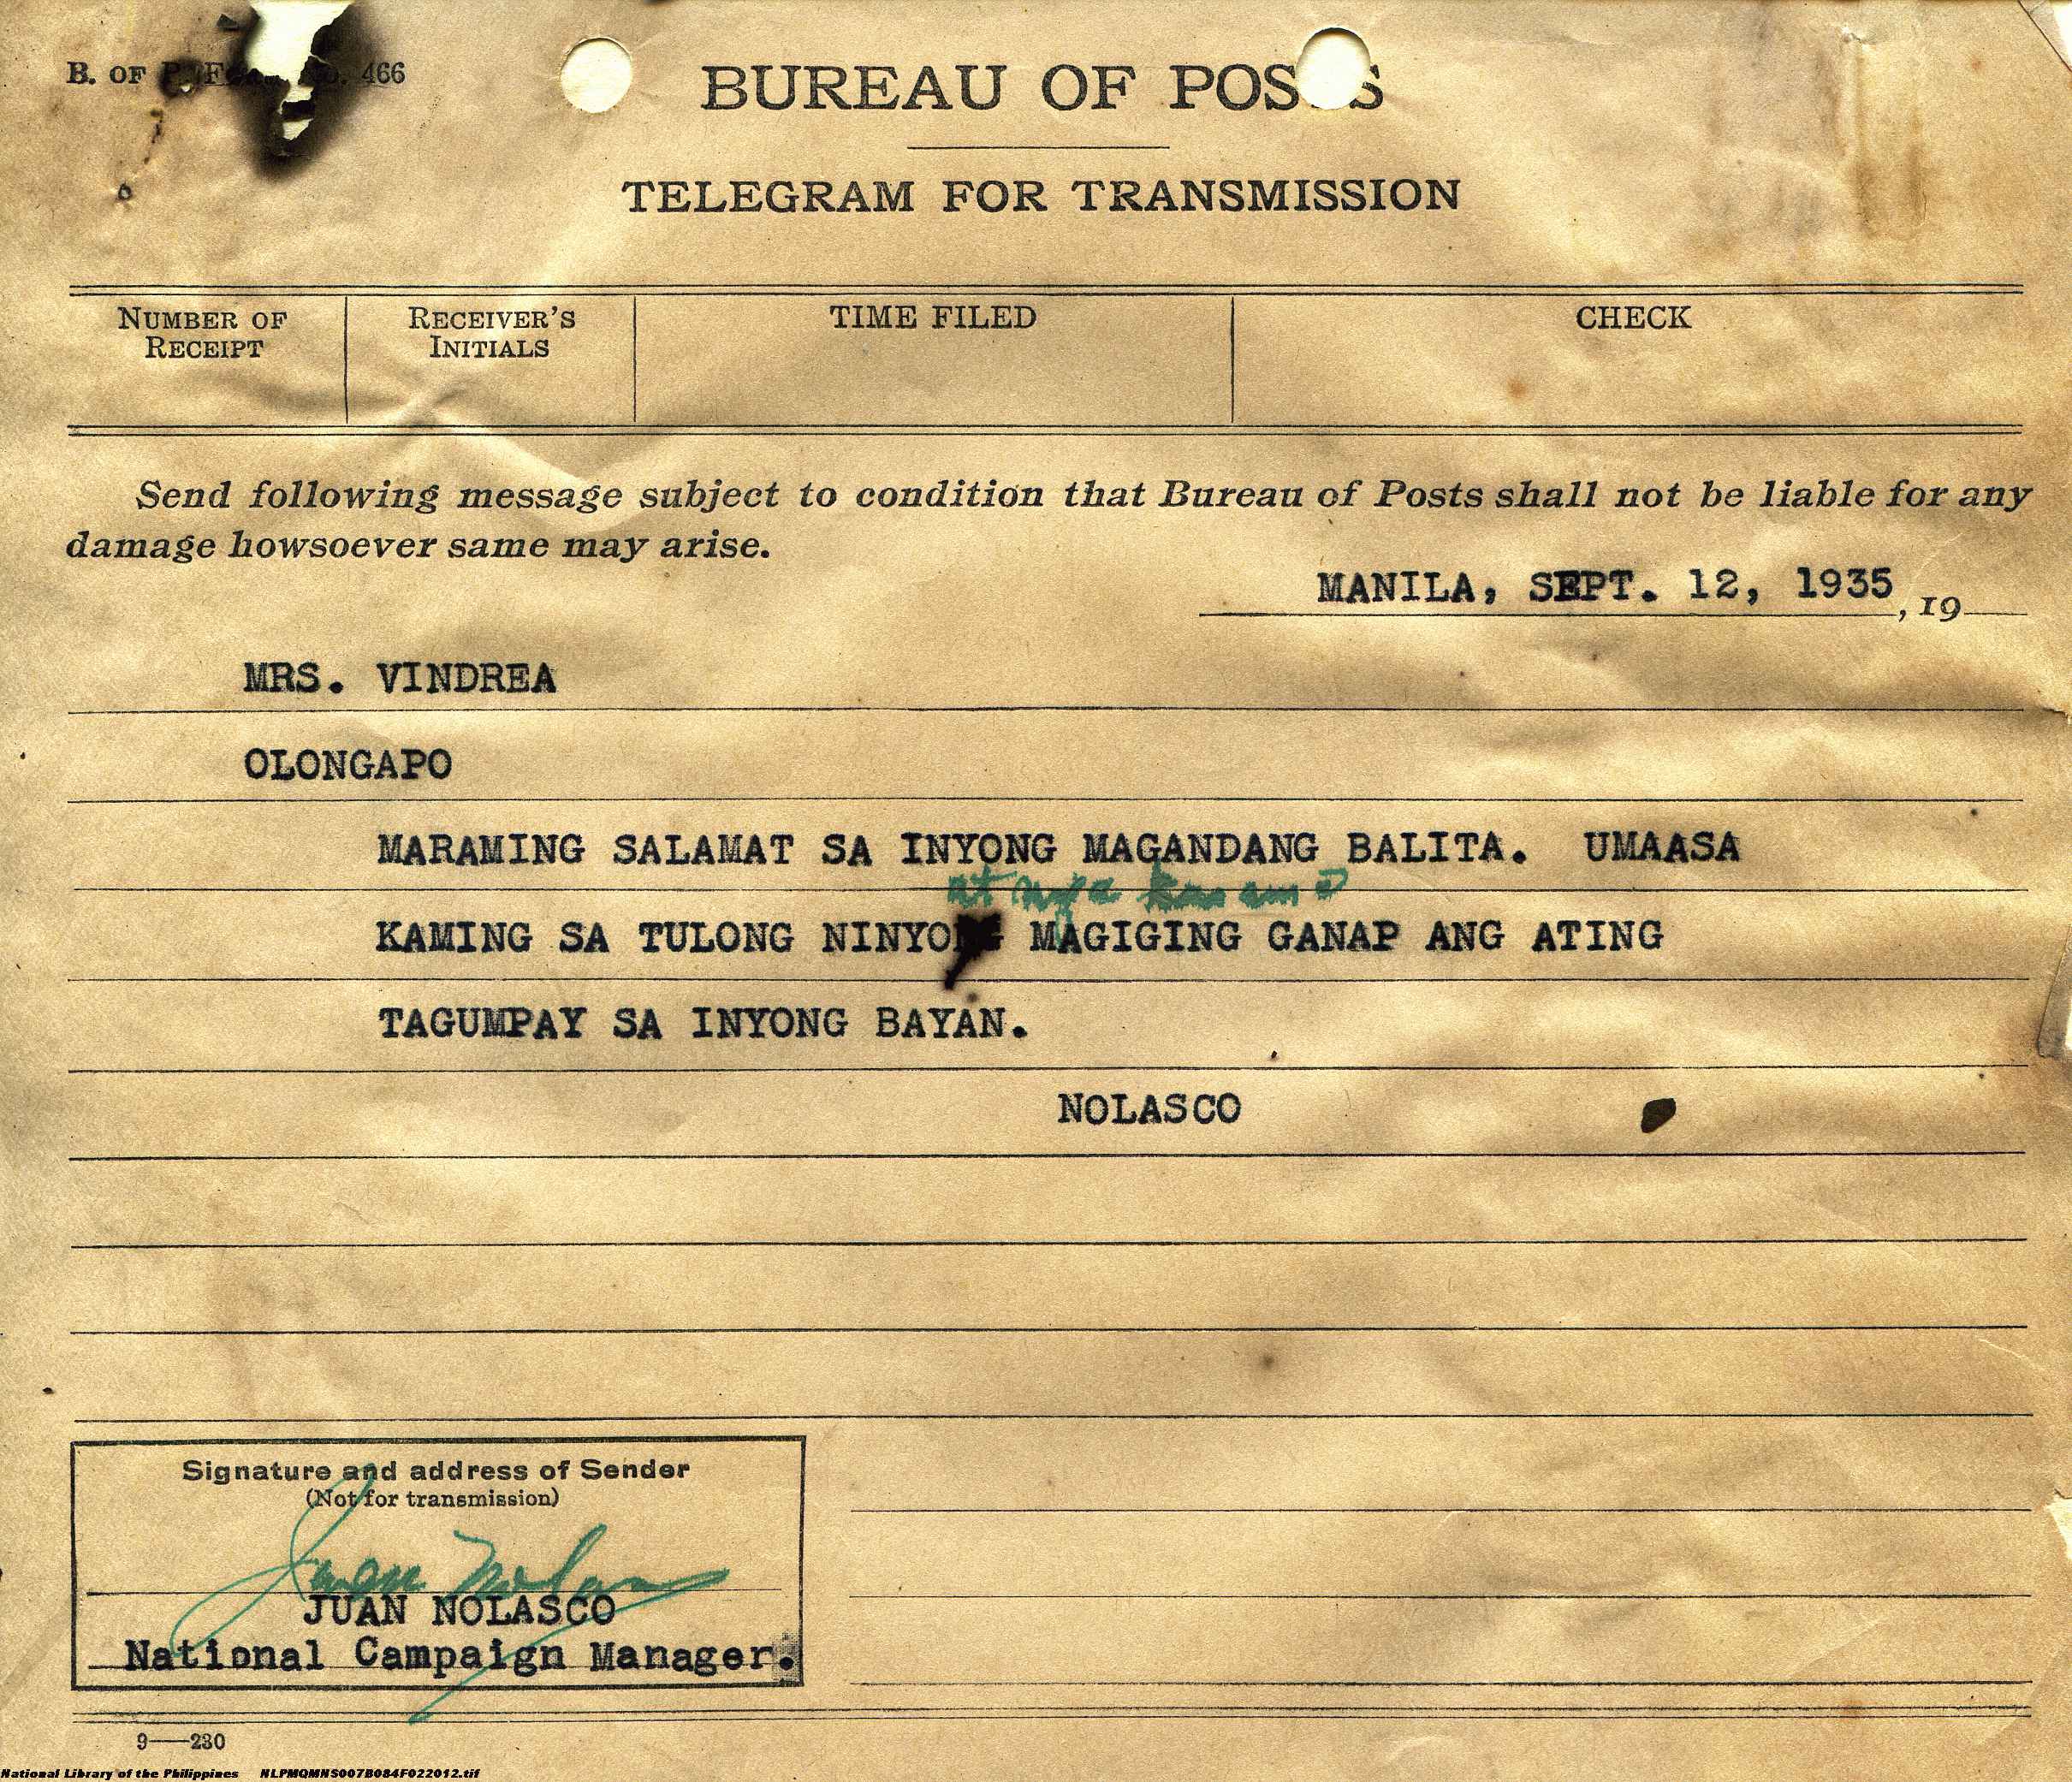 B. OF P. FORM No. 466
BUREAU OF POSTS
TELEGRAM FOR TRANSMISSION
NUMBER OF RECEIPT
RECEIVER'S INITIALS
TIME FILED
CHECK
Send following message subject to condition that Bureau of Posts shall not be liable for any
damage howsoever same may arise.
MANILA, SEPT. 12, 1935, 19
MRS. VINDREA
OLONGAPO
MARAMING SALAMAT SA INYONG MAGANDANG BALITA. UMAASA
at mga kasama
KAMING SA TULONG NINYONG MAGIGING GANAP ANG ATING
TAGUMPAY SA INYONG BAYAN.
NOLASCO
Signature and address of Sender
(Not for transmission)
Juan Nolasco
JUAN NOLASCO
National Campaign Manager.
9—230
National Library of the Philippines NLPMQMNS007B084F022012.tif